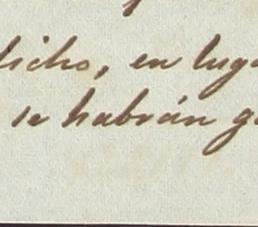 dicho, en luga
se habrán g